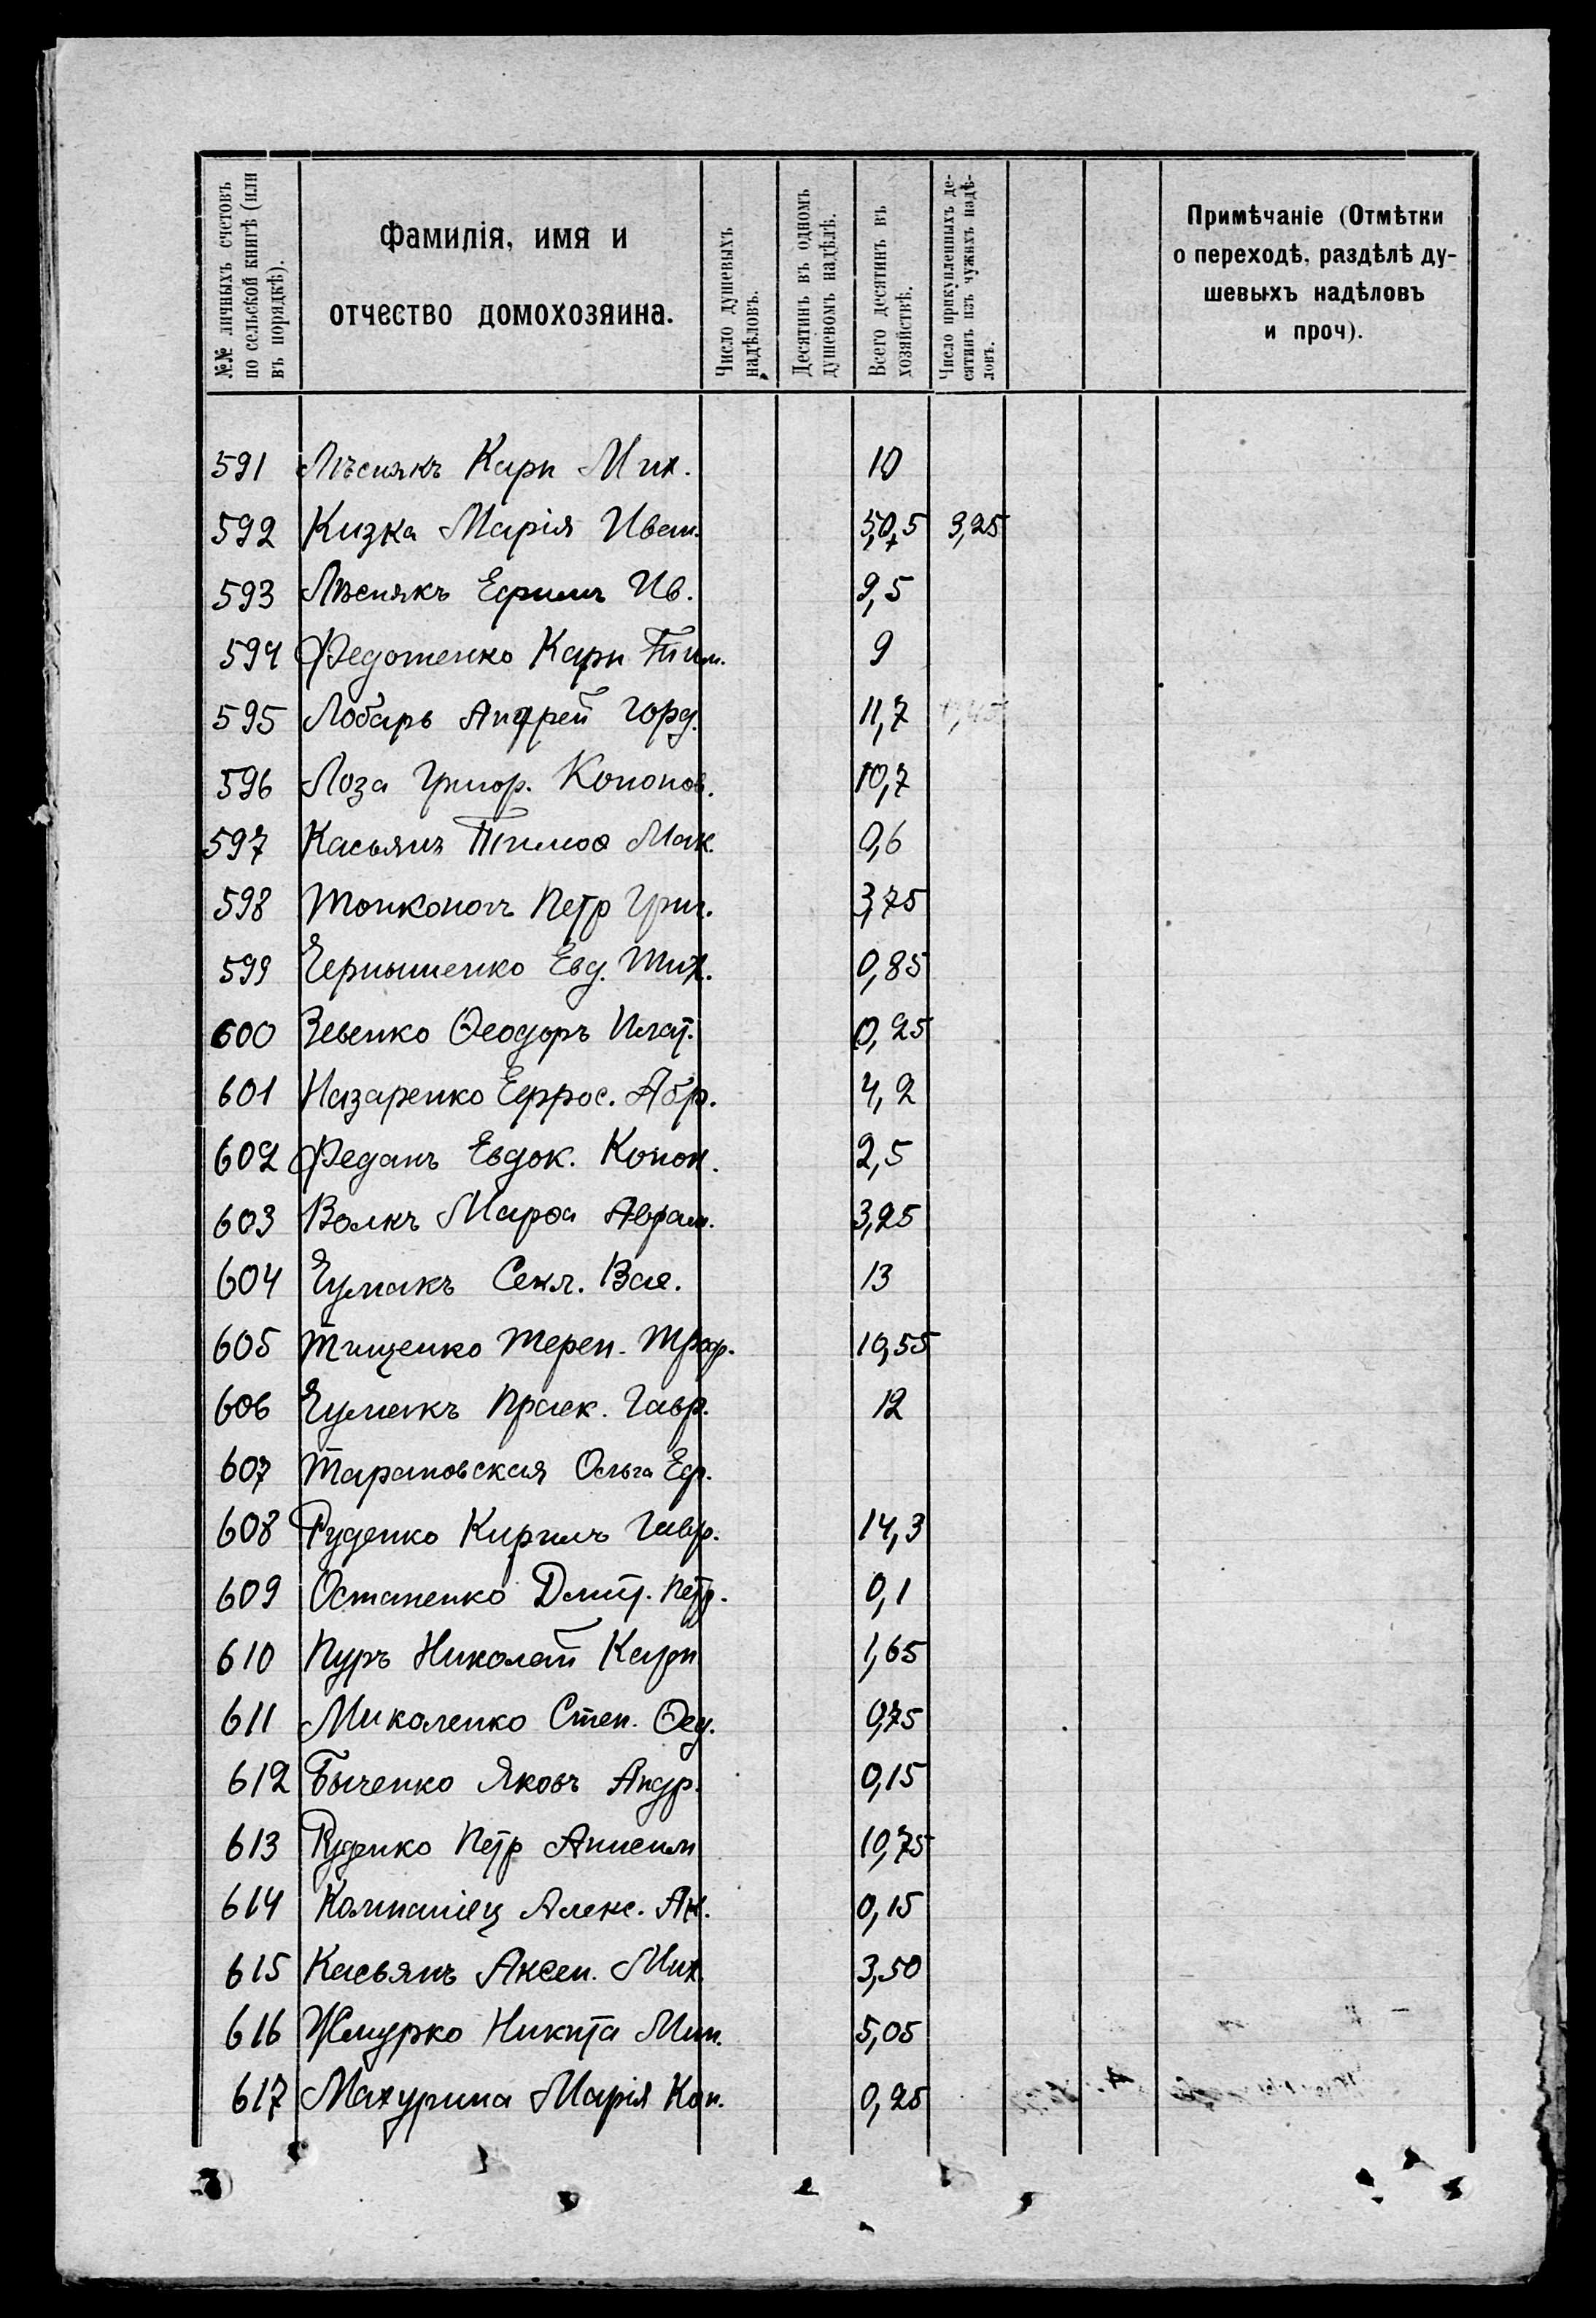 №№ личныхъ счетовъ по сельской книгѣ (или въ порядкѣ).
Фамилія, имя и отчество домохозяина.
Число душевыхъ надѣловъ.
Десятинъ въ одномъ душевомъ надѣлѣ.
Всего десятинъ въ хозяйствѣ.
Число прикупленныхъ десятинъ изъ чужихъ надѣловъ.
Примѣчаніе (Отмѣтки о переходѣ, раздѣлѣ душевыхъ надѣловъ и проч).
591 Лѣснякъ Карп Мих. 10
592 Кизка Марія Иван. 50,5 3,25
593 Лѣснякъ Ефимъ Ив. 9,5
594 Федотенко Карп Тим. 9
595 Лобарь Андрей Горд. 11,7
596 Лоза Григор. Кононов. 10,7
597 Касьянъ Тимоѳ Мак. 0,6
598 Тонконогъ Петр Григ. 3,75
599 Чернышенко Евд. Тих. 0,85
600 Зевенко Ѳеодоръ Плат. 0,25
601 Назаренко Ефрос. Абр. 4,2
602 Феданъ Евдок. Конон. 2,5
603 Волкъ Марѳа Аврам. 3,25
604 Чумакъ Секл. Вас. 13
605 Тищенко Терен. Троф. 10,55
606 Чумакъ Праск. Гавр. 12
607 Тарановская Ольга Еф.
608 Руденко Кирилъ Гавр. 14,3
609 Остапенко Дмит. Петр. 0,1
610 Пуръ Николай Карп 1,65
611 Миколенко Степ. Ѳед. 0,75
612 Быченко Яковъ Андр. 0,15
613 Руденко Петр Анисим 10,75
614 Компаніец Алекс. Ак. 0,15
615 Касьянъ Аксен. Мих. 3,50
616 Жмурко Никита Мин. 5,05
617 Махурина Марія Кон. 0,25